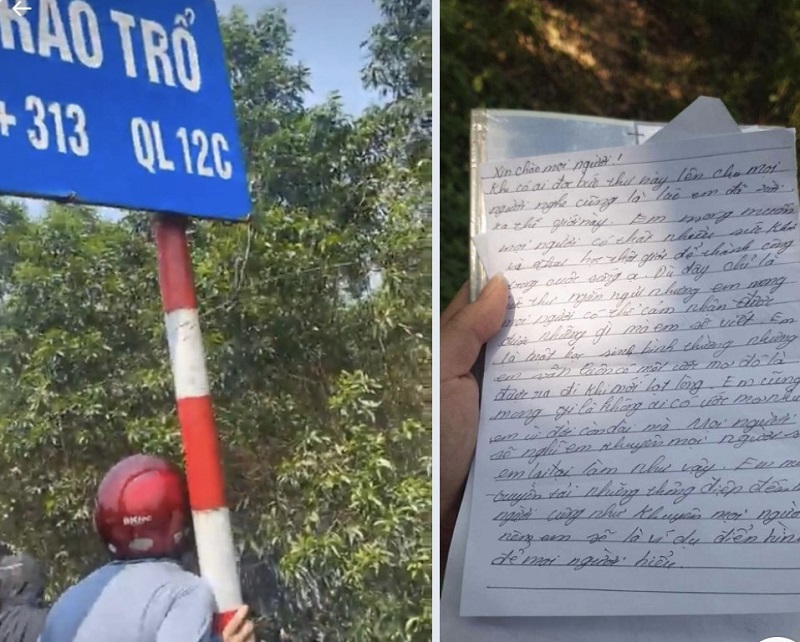 RÀO TRỔ
+ 313 QL 12C
BKtec
Xin chào mọi người!
Khi có ai đó bức thư này lên cho mọi
người nghe cũng là lúc em đã rời
xa thế giới này. Em mong muốn
mọi người có thật nhiều sức khỏ
và học thật giỏi để thành công
trong cuộc sống ạ. Dù đây chỉ là
thư ngắn ngủi nhưng em mong
mọi người có thể cảm nhận được
được những gì mà em sẽ viết. Em
là một học sinh bình thường nhưng
em vẫn luôn có một ước mơ đó là
được ra đi khi mới lọt lòng. Em cũng
mong gì là không ai có ước mơ như
em vì đời còn dài mà. Mọi người
sẽ nghĩ em khuyên mọi người s
em lại tại làm như vậy. Em m
truyền tải những thông điệp đến
người cũng như khuyên mọi người
nên em sẽ là ví dụ điển hình
để mọi người hiểu.